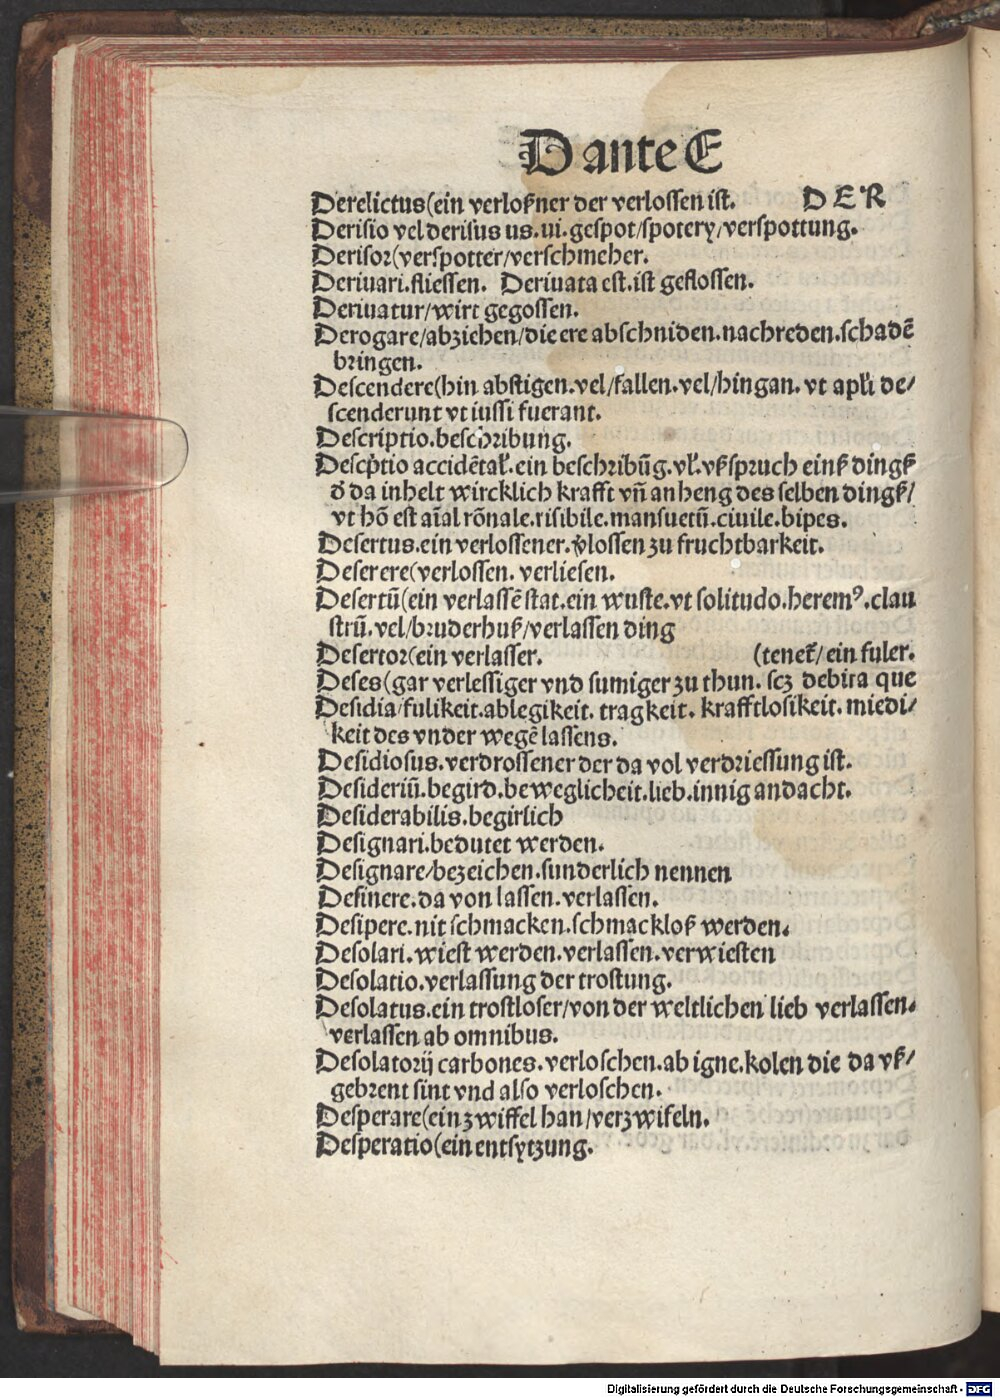 D ante E
Derelictus(ein verloßner der verlossen ist. DER
Derisio vel derisus us.ui.gespot/spotery/verspottung.
Derisor(verspotter/verschmeher.
Deriuari.fliessen. Deriuata est.ist geflossen.
Deriuatur/wirt gegossen.
Derogare/abziehen/die ere abschniden.nachreden.schadē
bringen.
Descendere(hin abstigen.vel/fallen.vel/hingan. vt apłi de/
scenderunt vt iussi fuerant.
Descriptio.beschribung.
Descp̄tio accidētał.ein beschribūg.vł.vßspruch einß dingß
ď da inhelt wircklich krafft vn̄ anheng des selben dingß/
vt hō est aīal rōnale.risibile.mansuetū.ciuile.bipes.
Desertus.ein verlossener.v̓lossen zu fruchtbarkeit.
Deserere(verlossen. verliesen.
Desertū(ein verlassē stat.ein wuste.vt solitudo.heremꝰ.clau
strū.vel/bruderhuß/verlassen ding
Desertor(ein verlasser. (tenet᷑/ein fuler.
Deses(gar verlessiger vnd sumiger zu thun. scꝫ debita que
Desidia/fulikeit.ablegikeit. tragkeit. krafftlosikeit. miedi/
keit des vnder wegē lassens.
Desidiosus.verdrossener der da vol verdriessung ist.
Desideriū.begird.beweglicheit.lieb.innig andacht.
Desiderabilis.begirlich
Designari.bedutet werden.
Designare/bezeichen.sunderlich nennen
Desinere.da von lassen.verlassen.
Desipere.nit schmacken.schmackloß werden.
Desolari.wiest werden.verlassen.verwiesten
Desolatio.verlassung der trostung.
Desolatus.ein trostloser/von der weltlichen lieb verlassen.
verlassen ab omnibus.
Desolatorij carbones.verloschen.ab igne.kolen die da vß/
gebrent sint vnd also verloschen.
Desperare(ein zwiffel han/verzwifeln.
Desperatio(ein entsytzung.
Digitalisierung gefördert durch die Deutsche Forschungsgemeinschaft - DFG